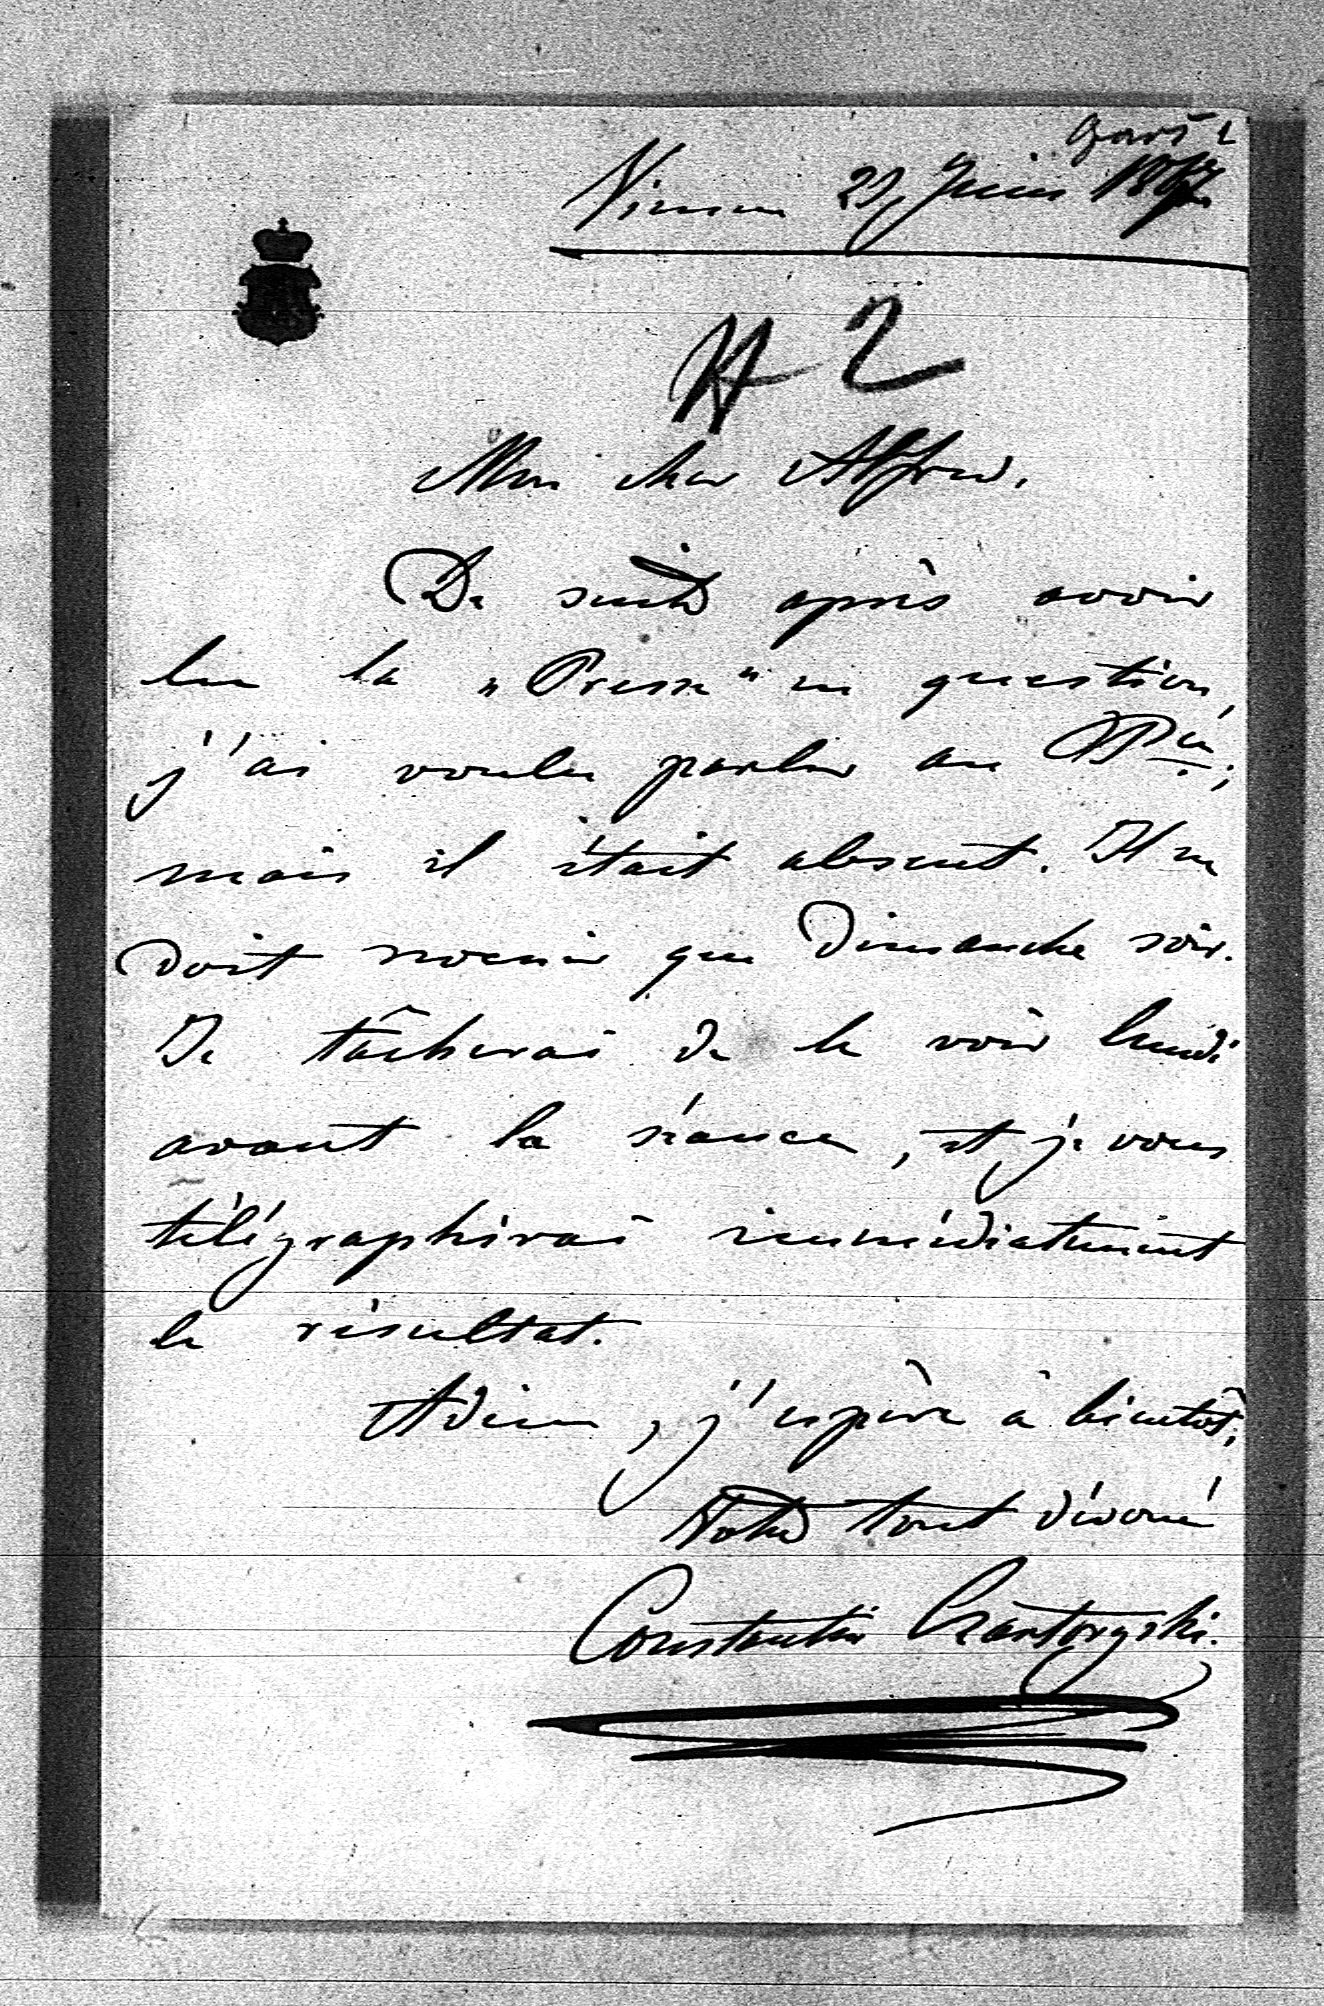 Vienne 21 Juin
2
Mon cher Alfred.
De suite après avoir
lu la „Presse" en question,
j'ai voulu parler au
mais il était absent. Il ne
doit revenir que Dimanche soir.
Je tâcherai de le voir lundi
avant la séance, et je vous
télégraphirai immédiatement
le résultat.
Adieu, j'espère à bientôt,
Votre tout dévoué
Constantin Czartoryski.